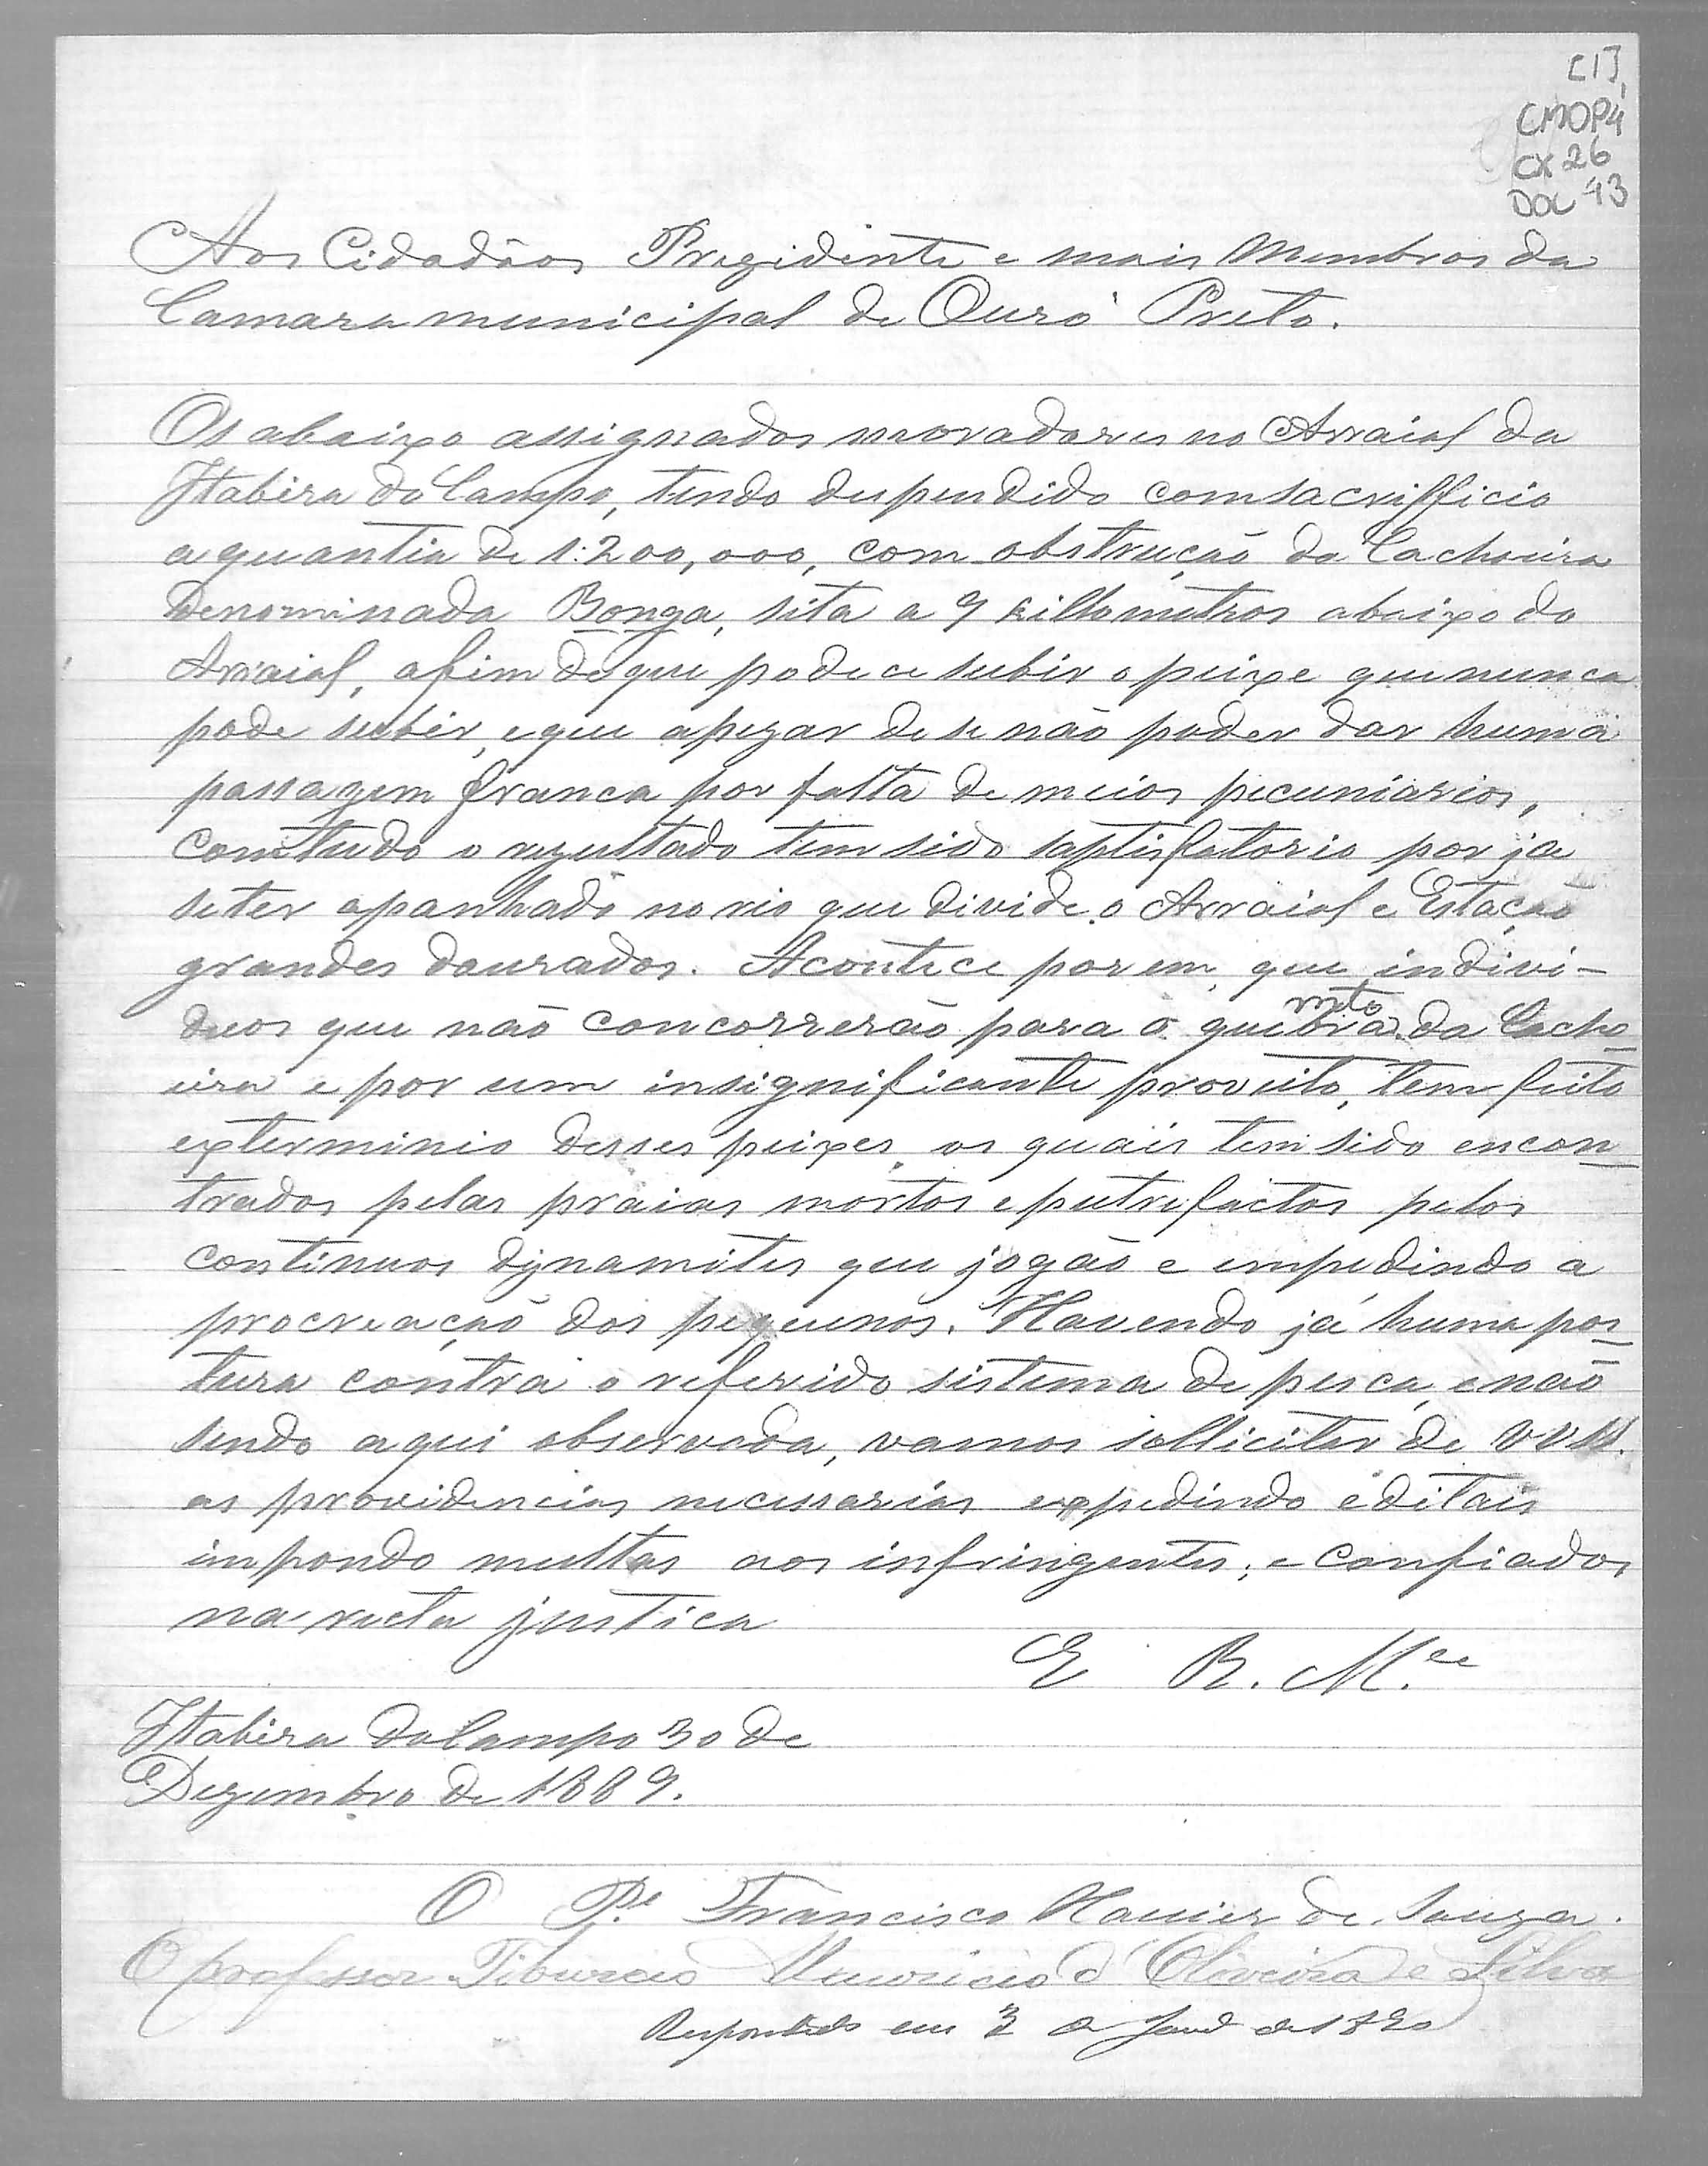 [1]
CMOP4
CX 26
DOC 43
Aos Cidadãos Prezidente e mais Membros da
Camara municipal de Ouro Preto.
Os abaixo assignados moradores no Arraial da
Itabira do Campo, tendo despendido com sacrifficio
a quantia de 1:200,000, com obstrução da Cachoeira
denominada Bonga, sita a 9 killometros abaixo do
Arraial, afim de que podece subir o peixe que nunca
pode subir, e que apezar de se não poder dar huma
passagem franca por falta de meios pecuniarios,
comtudo o rezultado tem sido saptisfatorio por já
se ter apanhado no rio que divide o Arraial e Estação
grandes dourados. Acontece porem, que indivi-
duos que não concorrerão para o quebramto da Cacho
eira e por um insignificante proveito, tem feito
exterminio desses peixes, os quais tem sido encon
trados pelas praias mortos e putrefactos pelos
continuos dynamites que jogão e empedindo a
procreação dos pequenos. Havendo já huma pos
tura contra o referido sistema de pesca, e não
sendo aqui observada, vamos sollicitar de VVSS.
as providencias necessarias expedindo editais
impondo multas aos infringentes; e confiados
na recta justica
E R. M.ce
Itabira do Campo 30 de
Dezembro de 1889.
O P.e Francisco Xavier de Souza.
O professor Tiburcio Mauricio d'Oliveira e Silva
Respondido em 3 de Janº de 1890